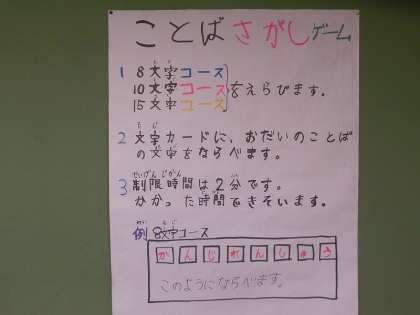 ことばさがしゲーム
1 8文字コース
10文字コース をえらびます。
15文字コース
2 文字カードに、おだいのことば
の文字をならべます。
3 制限時間は2分です。
かかった時間できそいます。
例 8文字コース
かんじれんしゅう
このようにならべます。